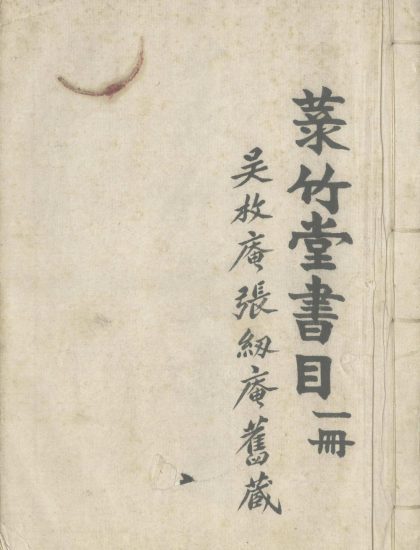 菉竹堂書目一冊
吴枚庵張紉庵舊藏